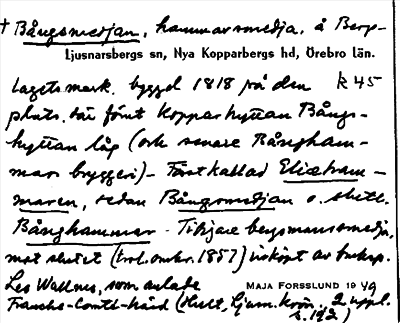 † Bångsmedjan, hammarsmedja, å Berg-
Ljusnarsbergs sn, Nya Kopparbergs hd, Örebro län.
lagets mark. byggd 1818 på den K 45
plats, där förut kopparhyttan Bångs-
hyttan låg (och senare Bångham-
mars bryggeri) - Först kallad Eliæham-
maren, sedan Bångsmedjan o. slutl.
Bånghammar. Tidigare bergsmanssmedja,
mot slutet (trol. omkr. 1857) inköpt av bruksp.
Lars Wallner, som anlade
Franche-Comté-härd (Hult, Hjam.krön. 2 uppl.
s. 192)
MAJA FORSSLUND 1949